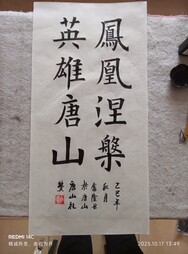 鳳凰涅槃
英雄唐山
乙巳年
秋月
於唐山
唐山杜
REDMI 14C
2025.10.17 13:49